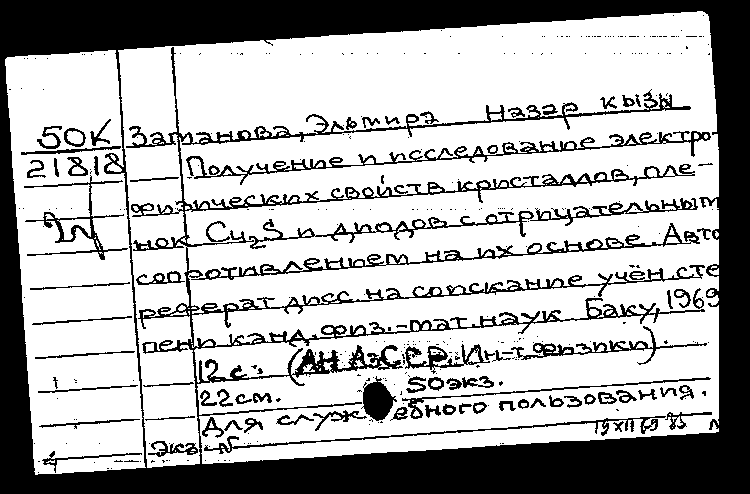 50К Заманова, Эльмира Назар кызы
21818 Получение и исследование электро-
физических свойств кристаллов, пле-
нок Cu₂S и диодов с отрицательным
сопротивлением на их основе. Авто
реферат дисс. на соискание учён. сте
пени канд. физ.-мат. наук Баку, 1969
12 с. (АН АзССР. Ин-т физики).
22 см. 50 экз.
Для служебного пользования.
Экз. №